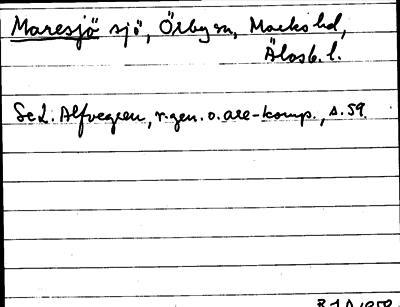 Maresjö sjö, Örby sn, Marks hd,
Älvsb. l.
Se L. Alfvegren, r-gen. o. are-komp., s. 59.